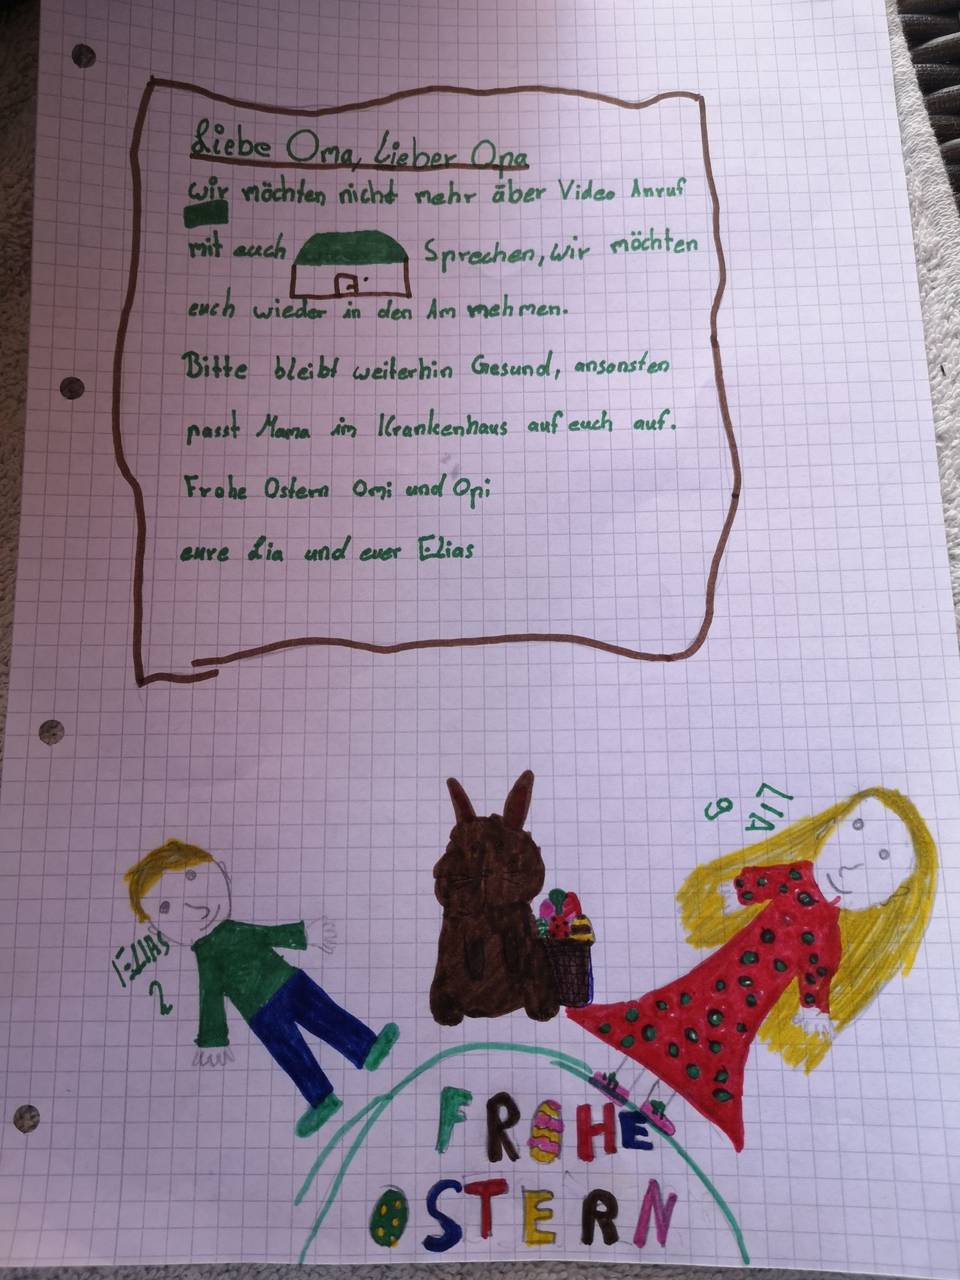 Liebe Oma, Lieber Opa
wir möchten nicht mehr äber Video Anruf
mit euch Sprechen, wir möchten
euch wieder in den Am mehmen.
Bitte bleibt weiterhin Gesund, ansonsten
passt Mama im Krankenhaus auf euch auf.
Frohe Ostern Omi und Opi
eure Lia und euer Elias
LIA
9
ELIAS
2
FROHE
OSTERN